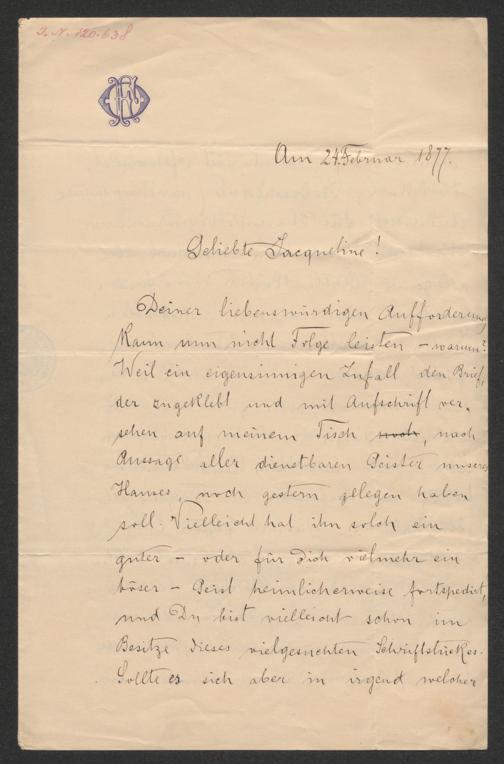 I. N. 126.638
Am 24. Februar 1877.
Geliebte Jacqueline!
Deiner liebenswürdigen Aufforderung
kann nun nicht Folge leisten – warum?
Weil ein eigensinnigen Zufall den Brief,
der zugeklebt und mit Aufschrift ver-
sehen auf meinem Tisch noch, nach
Aussage aller dienstbaren Geister unseres
Hauses, noch gestern gelegen haben
soll. Vielleicht hat ihn solch ein
guter – oder für Dich vielmehr ein
böser – Geist heimlicherweise fortspedirt,
und Du bist vielleicht schon im
Besitze dieses vielgesuchten Schriftstückes.
Sollte es sich aber in irgend welcher